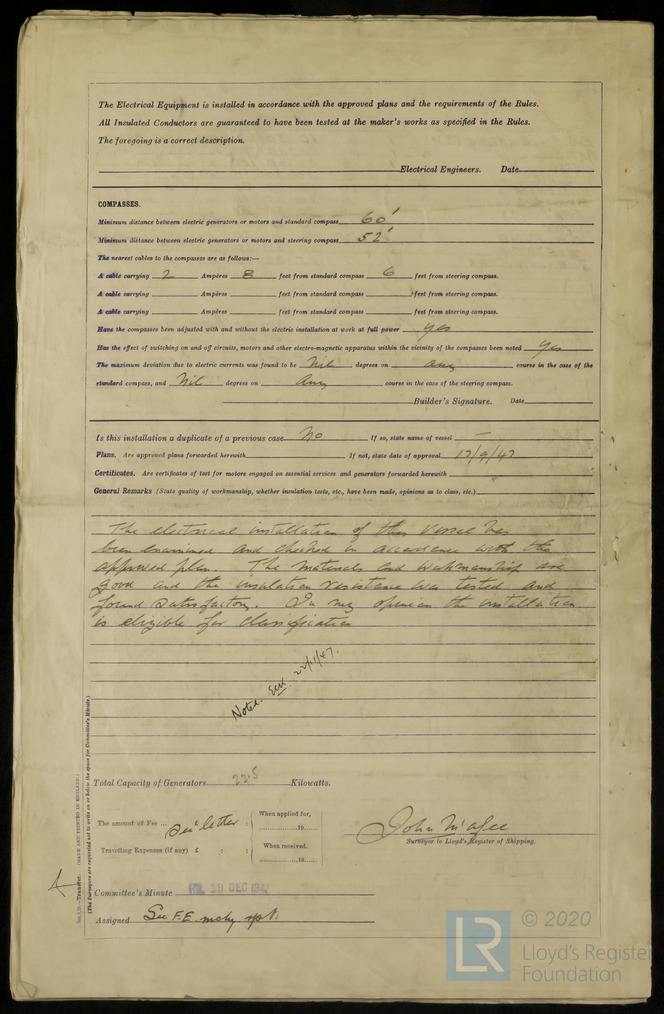 The Electrical Equipment is installed in accordance with the approved plans and the requirements of the Rules.
All Insulated Conductors are guaranteed to have been tested at the maker's works as specified in the Rules.
The foregoing is a correct description.
Electrical Engineers. Date
COMPASSES.
Minimum distance between electric generators or motors and standard compass 60'
Minimum distance between electric generators or motors and steering compass 52'
The nearest cables to the compasses are as follows:—
A cable carrying 2 Ampères 8 feet from standard compass 6 feet from steering compass.
A cable carrying Ampères feet from standard compass feet from steering compass.
A cable carrying Ampères feet from standard compass feet from steering compass.
Have the compasses been adjusted with and without the electric installation at work at full power yes
Has the effect of switching on and off circuits, motors and other electro-magnetic apparatus within the vicinity of the compasses been noted yes
The maximum deviation due to electric currents was found to be Nil degrees on any course in the case of the
standard compass, and Nil degrees on Any course in the case of the steering compass.
Builder's Signature. Date
Is this installation a duplicate of a previous case No If so, state name of vessel —
Plans. Are approved plans forwarded herewith If not, state date of approval 17/9/47
Certificates. Are certificates of test for motors engaged on essential services and generators forwarded herewith
General Remarks (State quality of workmanship, whether insulation tests, etc., have been made, opinions as to class, etc.)
The electrical installation of this vessel has
been examined and checked in accordance with the
approved plan. The materials and workmanship are
good and the insulation resistance was tested and
found satisfactory. In my opinion the installation
is eligible for classification
Noted. 22/11/47.
Total Capacity of Generators 22.5 Kilowatts.
The amount of Fee ... See letter : When applied for,
19
Travelling Expenses (if any) £ : : When received.
19
John McAfee
Surveyor to Lloyd's Register of Shipping.
Committee's Minute 19 DEC 1947
Assigned See F.E. mchy rpt.
Transfer. (MADE AND PRINTED IN ENGLAND.)
(The Surveyors are requested not to write on or below the space for Committee's Minute.)
LR © 2020
Lloyd's Register
Foundation